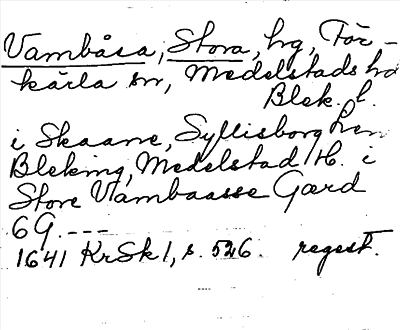 Vambåsa, Stora, hg, För-
kärla sn, Medelstads hd
Blek. l.
i Skaane, Syllisborg Len
Bleking, Medelstad H. i
Store Vambaasse Gard
6 G. ---
1641 KrSk 1, s. 526. regest.